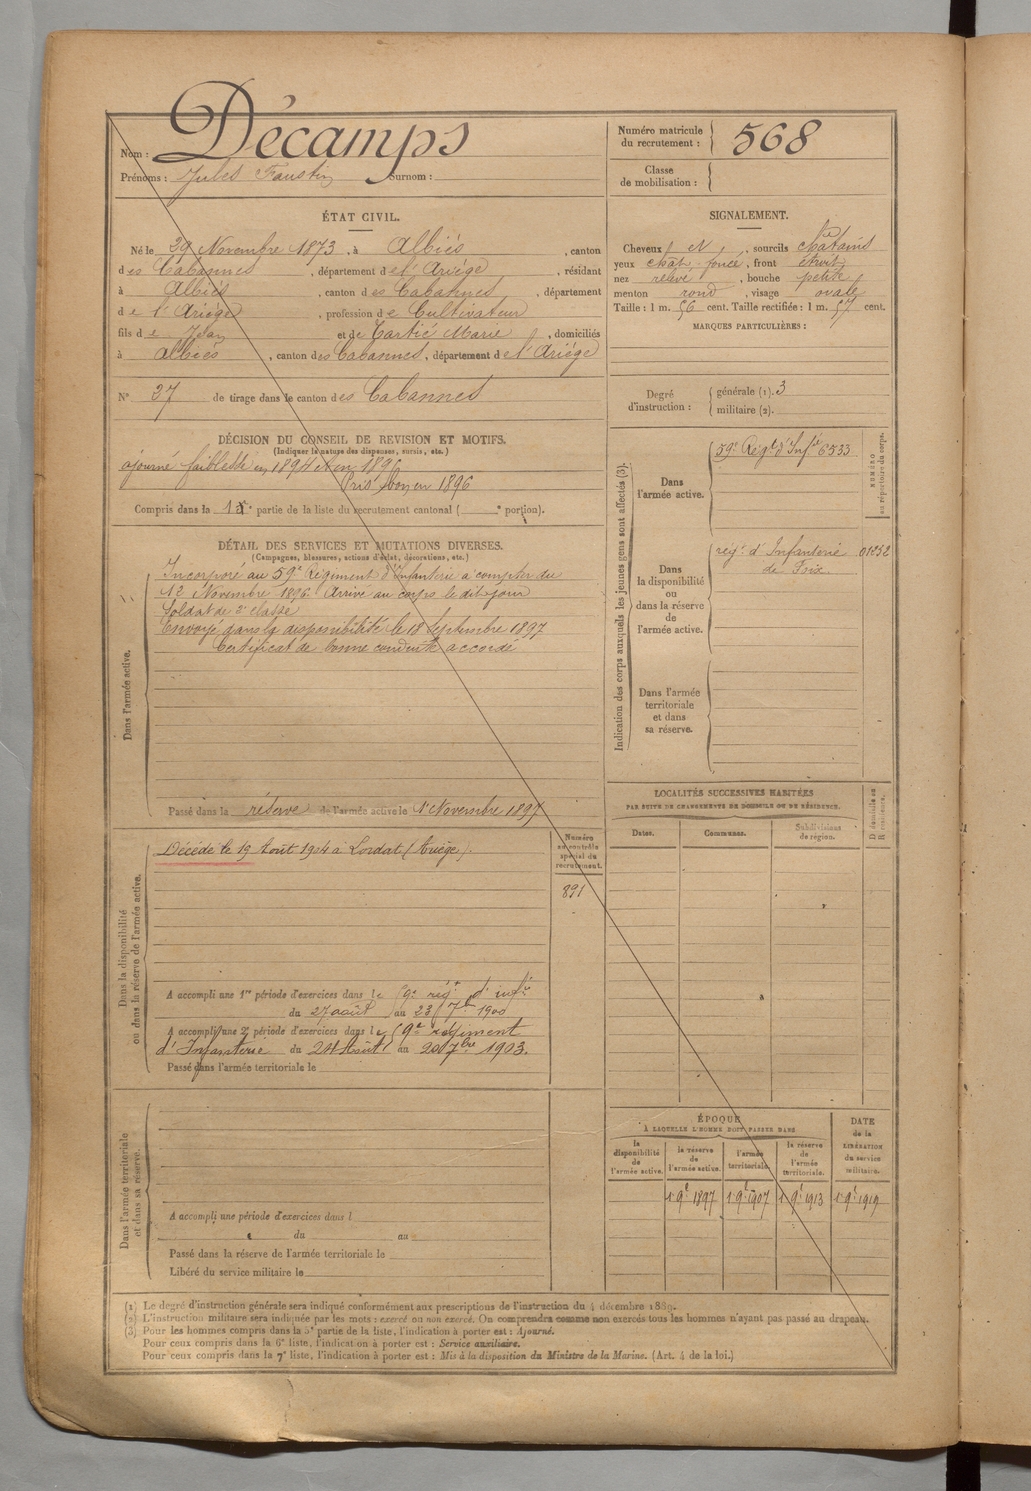 Nom : Décamps
Prénoms : Jules Faustin Surnom :
Numéro matricule du recrutement : 568
Classe de mobilisation :
ÉTAT CIVIL.
Né le 29 Novembre 1873, à Albiès, canton
des Cabannes, département de l'Ariège, résidant
à Albiès, canton des Cabannes, département
de l'Ariège, profession de Cultivateur
fils de Jean et de Tartié Marie, domiciliés
à Albiès, canton des Cabannes, département de l'Ariège
N° 37 de tirage dans le canton des Cabannes
SIGNALEMENT.
Cheveux et, sourcils châtains
yeux chât. foncé, front étroit
nez relevé, bouche petite
menton rond, visage ovale
Taille : 1 m. 56 cent. Taille rectifiée : 1 m. 57 cent.
MARQUES PARTICULIÈRES :
Degré d'instruction :
générale (1). 3
militaire (2).
DÉCISION DU CONSEIL DE REVISION ET MOTIFS.
(Indiquer la nature des dispenses, sursis, etc.)
ajourné faiblesse en 1894 et en 1895
Pris bon en 1896
Compris dans la 1re partie de la liste du recrutement cantonal ( e portion).
DÉTAIL DES SERVICES ET MUTATIONS DIVERSES.
(Campagnes, blessures, actions d'éclat, décorations, etc.)
Dans l'armée active.
Incorporé au 59e Régiment d'Infanterie à compter du
12 Novembre 1896. Arrivé au corps le dit jour
Soldat de 2e classe
Envoyé dans la disponibilité le 18 Septembre 1897
Certificat de bonne conduite accordé
Passé dans la réserve de l'armée active le 1er Novembre 1897
Dans la disponibilité
ou dans la réserve de l'armée active.
Décédé le 19 Août 1904 à Lordat (Ariège).
Numéro au contrôle spécial du recrutement.
891
A accompli une 1re période d'exercices dans le 59e rég. d'infie
du 27 août au 23 7bre 1900
A accompli une 2e période d'exercices dans le 59e régiment
d'Infanterie du 24 Août au 20 7bre 1903.
Passé dans l'armée territoriale le
Dans l'armée territoriale
et dans sa réserve.
A accompli une période d'exercices dans l
du au
Passé dans la réserve de l'armée territoriale le
Libéré du service militaire le
Indication des corps auxquels les jeunes gens sont affectés (3).
NUMÉRO
au répertoire du corps.
Dans l'armée active.
59e Régt d'Infie 6533
Dans la disponibilité ou dans la réserve de l'armée active.
régt d'Infanterie 01252
de Foix
Dans l'armée territoriale et dans sa réserve.
LOCALITÉS SUCCESSIVES HABITÉES
PAR SUITE DE CHANGEMENTS DE DOMICILE OU DE RÉSIDENCE.
Dates. Communes. Subdivisions de région. D domicile ou R résidence.
ÉPOQUE
À LAQUELLE L'HOMME DOIT PASSER DANS
la disponibilité de l'armée active.
la réserve de l'armée active.
l'armée territoriale.
la réserve de l'armée territoriale.
DATE de la LIBÉRATION du service militaire.
1 9e 1897 1 9e 1907 1 9e 1913 1 9e 1919
(1) Le degré d'instruction générale sera indiqué conformément aux prescriptions de l'instruction du 4 décembre 1889.
(2) L'instruction militaire sera indiquée par les mots : exercé ou non exercé. On comprendra comme non exercés tous les hommes n'ayant pas passé au drapeau.
(3) Pour les hommes compris dans la 5e partie de la liste, l'indication à porter est : Ajourné.
Pour ceux compris dans la 6e liste, l'indication à porter est : Service auxiliaire.
Pour ceux compris dans la 7e liste, l'indication à porter est : Mis à la disposition du Ministre de la Marine. (Art. 4 de la loi.)